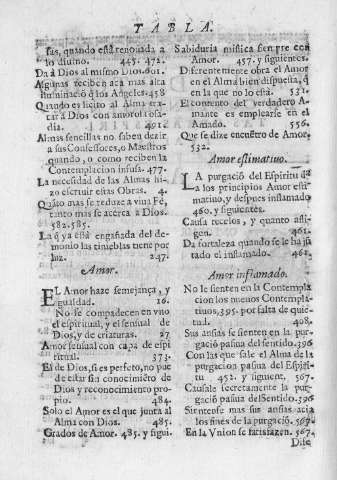 TABLA.
sas, quando està renouada a
lo diuino. 445. 472.
Da à Dios al mismo Dios. 601.
Algunas reciben aca mas alta
iluminació q̃ los Angeles. 458
Quando es licito al Alma tra-
tar à Dios con amorosa osa-
dia. 491.
Almas sencillas no saben dezir
a sus Confessores, o Maestros
quando, o como reciben la
Contemplacion infusa. 477.
La necesidad de las Almas hi-
zo escriuir estas Obras. 4.
Quãto mas se reduze a viua Fè,
tanto mas se acerca a Dios.
582. 585.
La q̃ ya està engañada del de-
monio las tinieblas tiene por
luz. 247.
Amor.
EL Amor haze semejança, y
igualdad. 16.
No se compadecen en vno
el espiritual, y el sensual de
Dios, y de criaturas. 27
Amor sensual con capa de espi
ritual. 373.
El de Dios, si es perfeto, no pue
de estar sin conocimiẽto de
Dios y reconocimiento pro-
pio. 484.
Solo el Amor es el que junta al
Alma con Dios. 485.
Grados de Amor. 485. y sigui.
Sabiduria mistica siempre con
Amor. 457. y siguientes.
Diferentemente obra el Amor
en el Alma bien dispuesta, q̃
en la que no lo està. 531.
El contento del verdadero A-
mante es emplearse en el
Amado. 556.
Que se dize encuẽtro de Amor.
532.
Amor estimatiuo.
LA purgaciõ del Espiritu dà
a los principios Amor esti-
matiuo, y despues inflamado
460. y siguiẽtes.
Causa recelos, y quanto afli-
gen. 461.
Da fortaleza quando se le ha jũ
tado el inflamado. 462.
Amor inflamado.
No le sienten en la Contempla
cion los nueuos Contempla-
tiuos, 395. por falta de quie-
tud. 408.
Sus ansias se sienten en la pur-
gaciõ pasiua del sentido. 396
Con las que sale el Alma de la
purgacion pasiua del Espiri-
tu 452. y siguient. 567.
Causale secretamente la pur-
gaciõ pasiua del Sentido. 396
Sientense mas sus ansias acia
los fines de la purgaciõ. 567.
En la Vnion se satisfazen. 567.
Dife